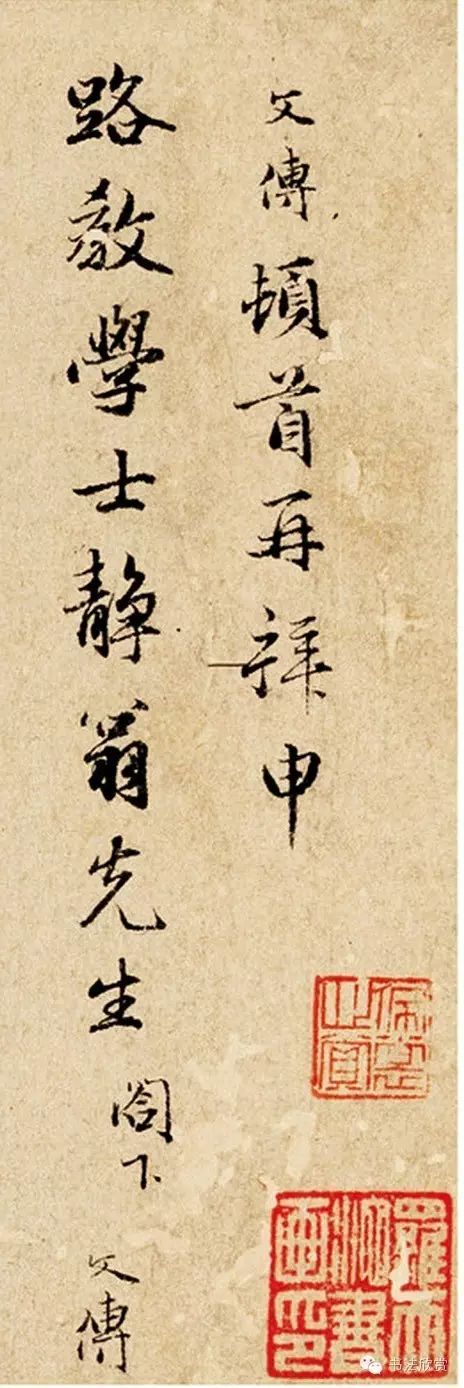 文傳頓首再拜申
路教學士靜翁先生閣下
文傳
書法欣赏